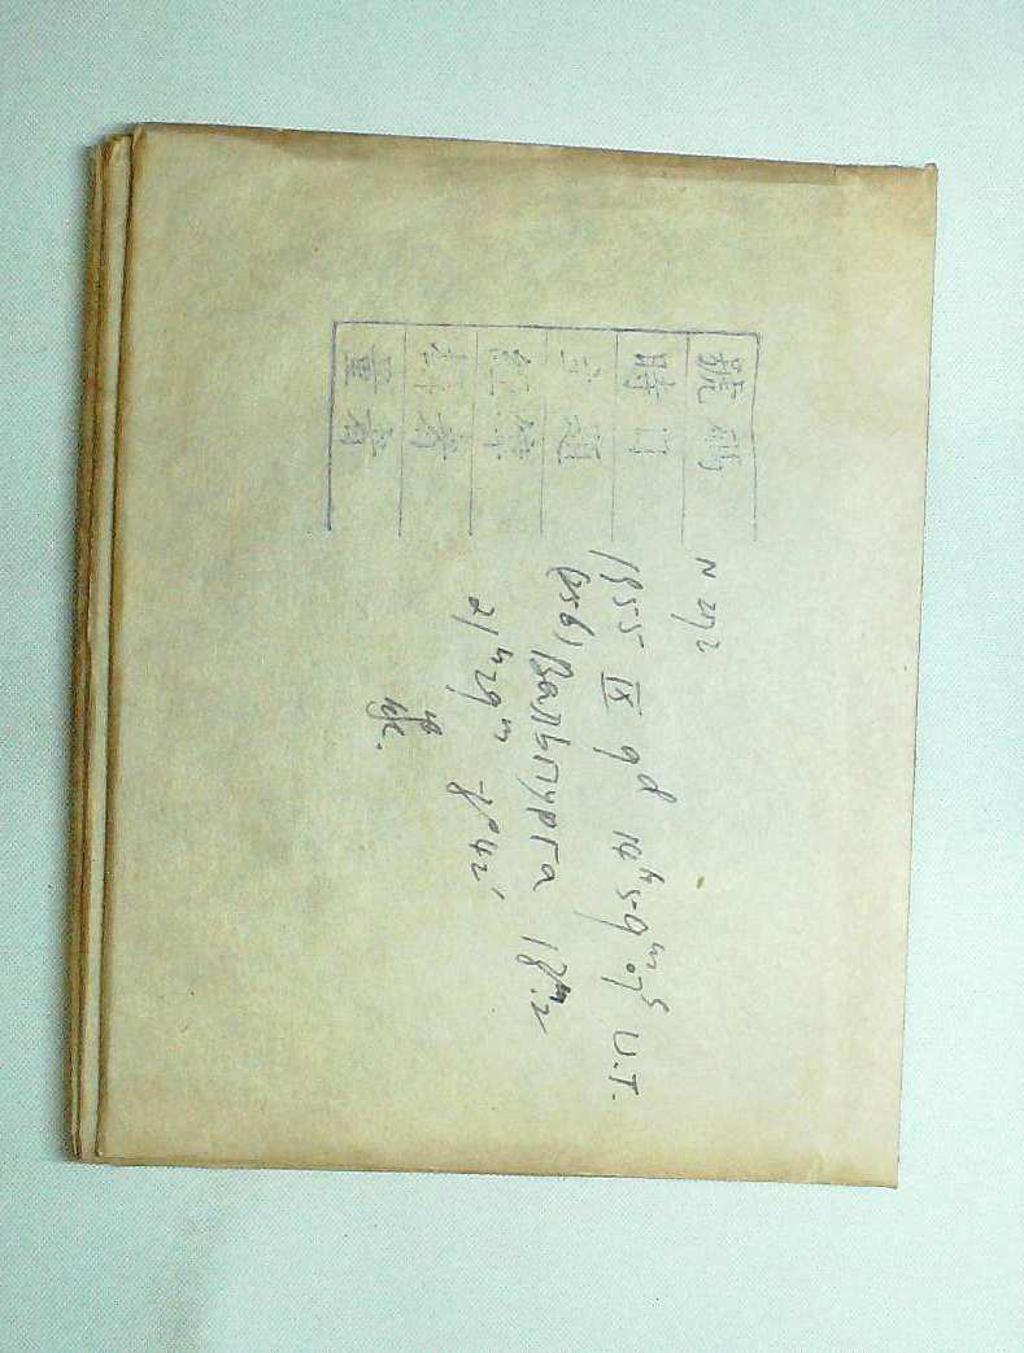 號碼 N 272
時日 1955 IX 9ᵈ 14ʰ59ᵐ.07ˢ U.T.
題 (256) Вальпурга 13ᵐ.2
經緯 21ʰ29ᵐ -8°42'
者
量者